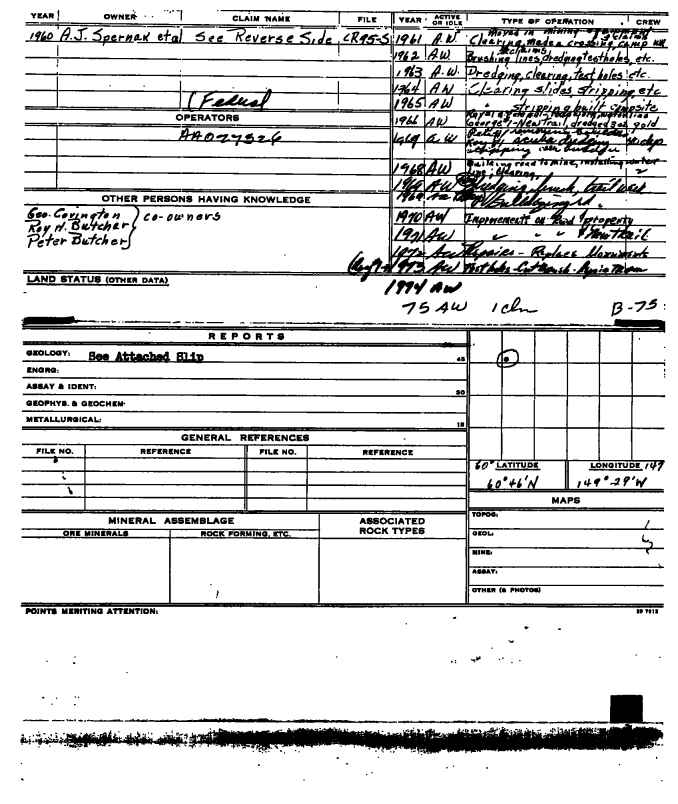 YEAR OWNER CLAIM NAME FILE YEAR ACTIVE OR IDLE TYPE OF OPERATION CREW
1960 A.J. Spernak etal See Reverse Side CR95-S 1961 A.W. Moved in mining equipment
Clearing, made a crossing, camp
1962 AW Brushing lines, dredging testholes, etc.
1963 A.W. Dredging, clearing, test holes etc.
1964 AW Clearing slides stripping, etc
(Federal 1965 AW " stripping built campsite
OPERATORS 1966 AW
AA027526
1968 AW Building road to mine, installing water
OTHER PERSONS HAVING KNOWLEDGE
Geo. Covington
Roy H. Butcher co-owners 1970 AW Improvements on property
Peter Butcher 1971 AW " " " New Trail
1972 AW Repairs - Replace Monuments
1973 AW Test holes - Cut Brush - Repair
LAND STATUS (OTHER DATA) 1974 AW
75 AW 1 clm B-75
REPORTS
GEOLOGY: See Attached Slip 45
ENGRG:
ASSAY & IDENT: 30
GEOPHYS. & GEOCHEM:
METALLURGICAL: 15
GENERAL REFERENCES
FILE NO. REFERENCE FILE NO. REFERENCE
60° LATITUDE LONGITUDE 149
60°46'N 149°-29'W
MAPS
MINERAL ASSEMBLAGE ASSOCIATED ROCK TYPES TOPOG:
ORE MINERALS ROCK FORMING, ETC. GEOL:
MINE:
ASSAY:
OTHER (& PHOTOS)
POINTS MERITING ATTENTION: